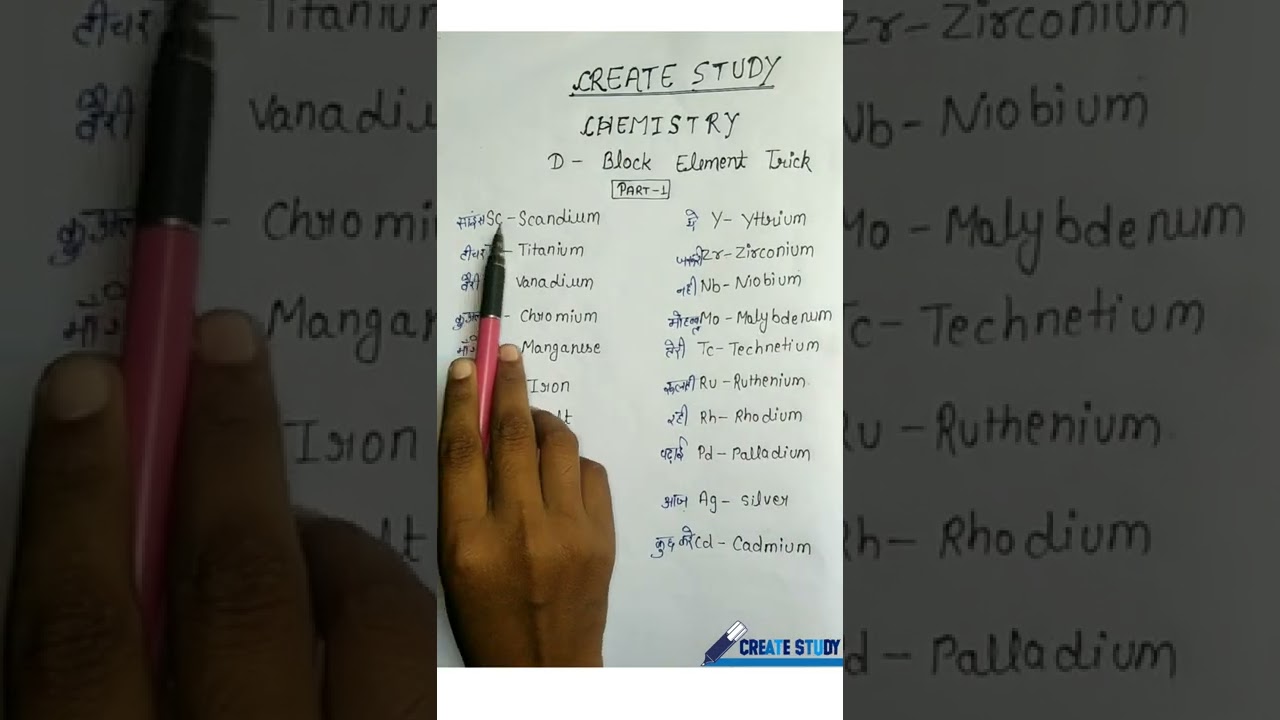 CREATE STUDY
CHEMISTRY
D - Block Element Trick
PART-1
साइंस Sc - Scandium
टीचर - Titanium
वैरी Vanadium
- Chromium
Manganese
Iron
lt
ये Y - Yttrium
Zr - Zirconium
नही Nb - Niobium
Mo - Malybdenum
तेरी Tc - Technetium
Ru - Ruthenium
रही Rh - Rhodium
पढ़ाई Pd - Palladium
आज Ag - Silver
कुछ करो Cd - Cadmium
CREATE STUDY